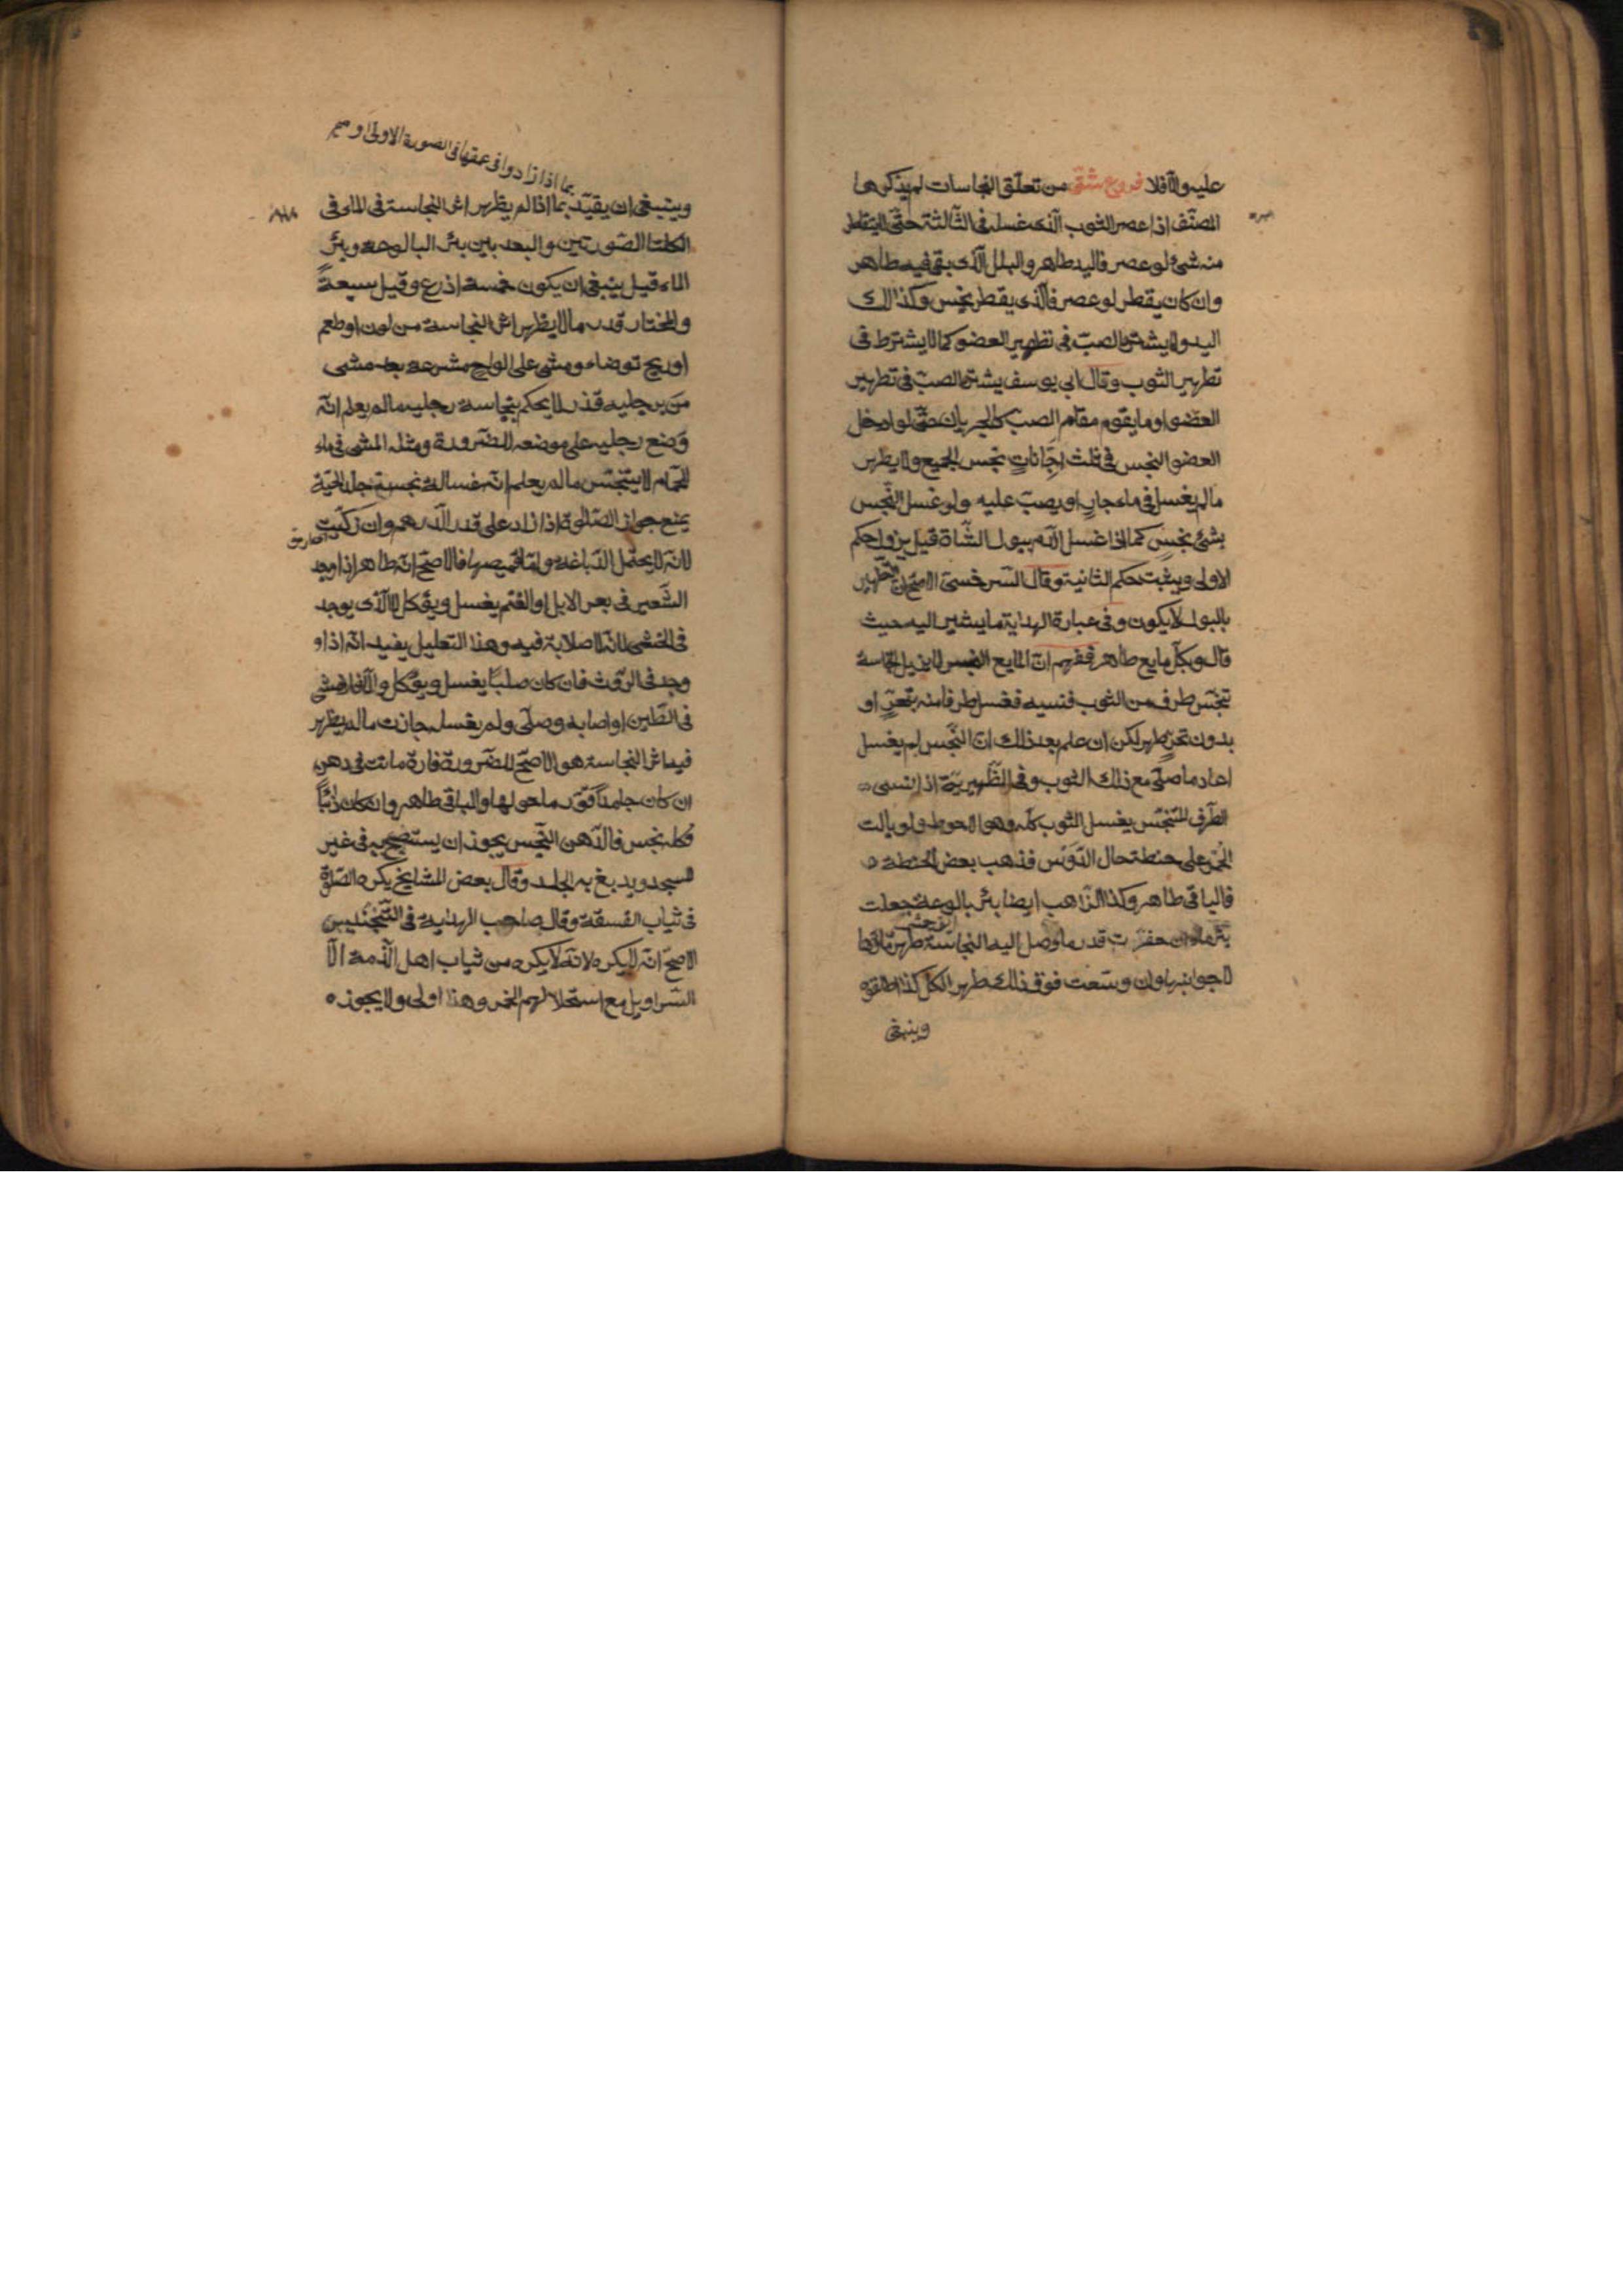 عليه والّا فلا فروع شتّى من تعلّق النجاسات لم يذكرها
المصنّف اذا عصر الثوب الّذى غسل فى الثّالثة حتّى لا يتقاطر
منه شئ لو عصر فاليد طاهر والبلل الّذى بقى فيه طاهر
وان كان يقطر لو عصر فالّذى يقطر نجس وكذالك
اليد ولا يشترط الصبّ فى تطهير العضو كما لا يشترط فى
تطهير الثوب وقال ابى يوسف يشترط الصبّ فى تطهير
العضو او ما يقوم مقام الصب كالجريان حتّى لو ادخل
العضو النجس فى ثلث اجّانات نجس الجميع ولا يطهر
مالم يغسل فى ماء جار او يصبّ عليه ولو غسل النّجس
بشئ نجس كما اذا غسل الدّم ببول الشّاة قيل يزول حكم
الاولى ويثبت حكم الثانية وقال السّرخسىّ الاصحّ ان التّطهير
بالبول لا يكون وفى عبارة الهداية ما يشير اليه حيث
قال وبكلّ مايع طاهر ففهم انّ المايع النجس لا يزيل النّجاسة
تنجّس طرف من الثوب فنسيه فغسل طرفا منه بتحرّ او
بدون تحرّ طهر لكن ان علم بعد ذلك انّ النّجس لم يغسل
اعاد ما صلّى مع ذلك الثوب وفى الظّهيريّة اذا نسى
الطّرف المتنجّس يغسل الثوب كلّه وهو الاحوط ولو بالت
الحُمُر على حنطة حال الدّوس فذهب بعض الحنطة
فالباقى طاهر وكذا الذّاهب ايضا بئر بالوعة جعلت
بئر ماء ان حفرت قدر ما وصل اليه النجاسة طهر ماؤها
لا جوانبها وان وسّعت فوق ذلك طهر الكل كذا اطلقوه
وينبغى
بما اذا زادوا فى عمقها فى الصورة الاولى او
وينبغى ان يقيّد بما اذا لم يظهر اثر النجاسة فى الماء فى
الكلتا الصّورتين والبعد بين بئر البالوعة وبئر
الماء قيل ينبغى ان يكون خمسة اذرع وقيل سبعةً
والمختار قدر مالا يظهر اثر النجاسة من لون او طعم
او ريح توضاء ومشى على الواح مشرعة بعد مشى
من برجليه قذر لا يحكم بنجاسة رجليه مالم يعلم انّه
وضع رجليه على موضعه للضّرورة ومثله المشى فى ماء
الحمّام لا يتنجّس مالم يعلم انّه غسالة نجسة جلد الحيّة
يمنع جواز الصّلوة اذا زاد على قدر الدّرهم وان زكّيت
لانّه لا يحتمل الدّباغة وامّا قميصها فالاصحّ انّه طاهر اذا وجد
الشّعير فى بعر الابل او الغنم يغسل ويؤكل لا الّذى يوجد
فى الخثى لانّه لا صلابة فيه وهذا التعليل يفيد انّه اذا و
وجد فى الرّوث فان كان صلبًا يغسل ويؤكل والّا فلا مشى
فى الطّين او اصابه وصلّى ولم يغسله جازت مالم يظهر
فيه اثر النجاسة هو الاصحّ للضّرورة فارة ماتت فى دهن
ان كان جامدًا قوّر ما حولها والباقى طاهر وان كان ذائبًا
فكله نجس فالدّهن النّجس يجوز ان يستصبح به فى غير
المسجد ويدبغ به الجلد وقال بعض المشايخ يكره الصّلوة
فى ثياب الفسقة وقال صاحب الهداية فى التّجنيس
الاصحّ انّه لا يكره لانّه لا يكره من ثياب اهل الذّمة الّا
السّراويل مع استحلالهم الخمر وهذا اولى ولا يجوز